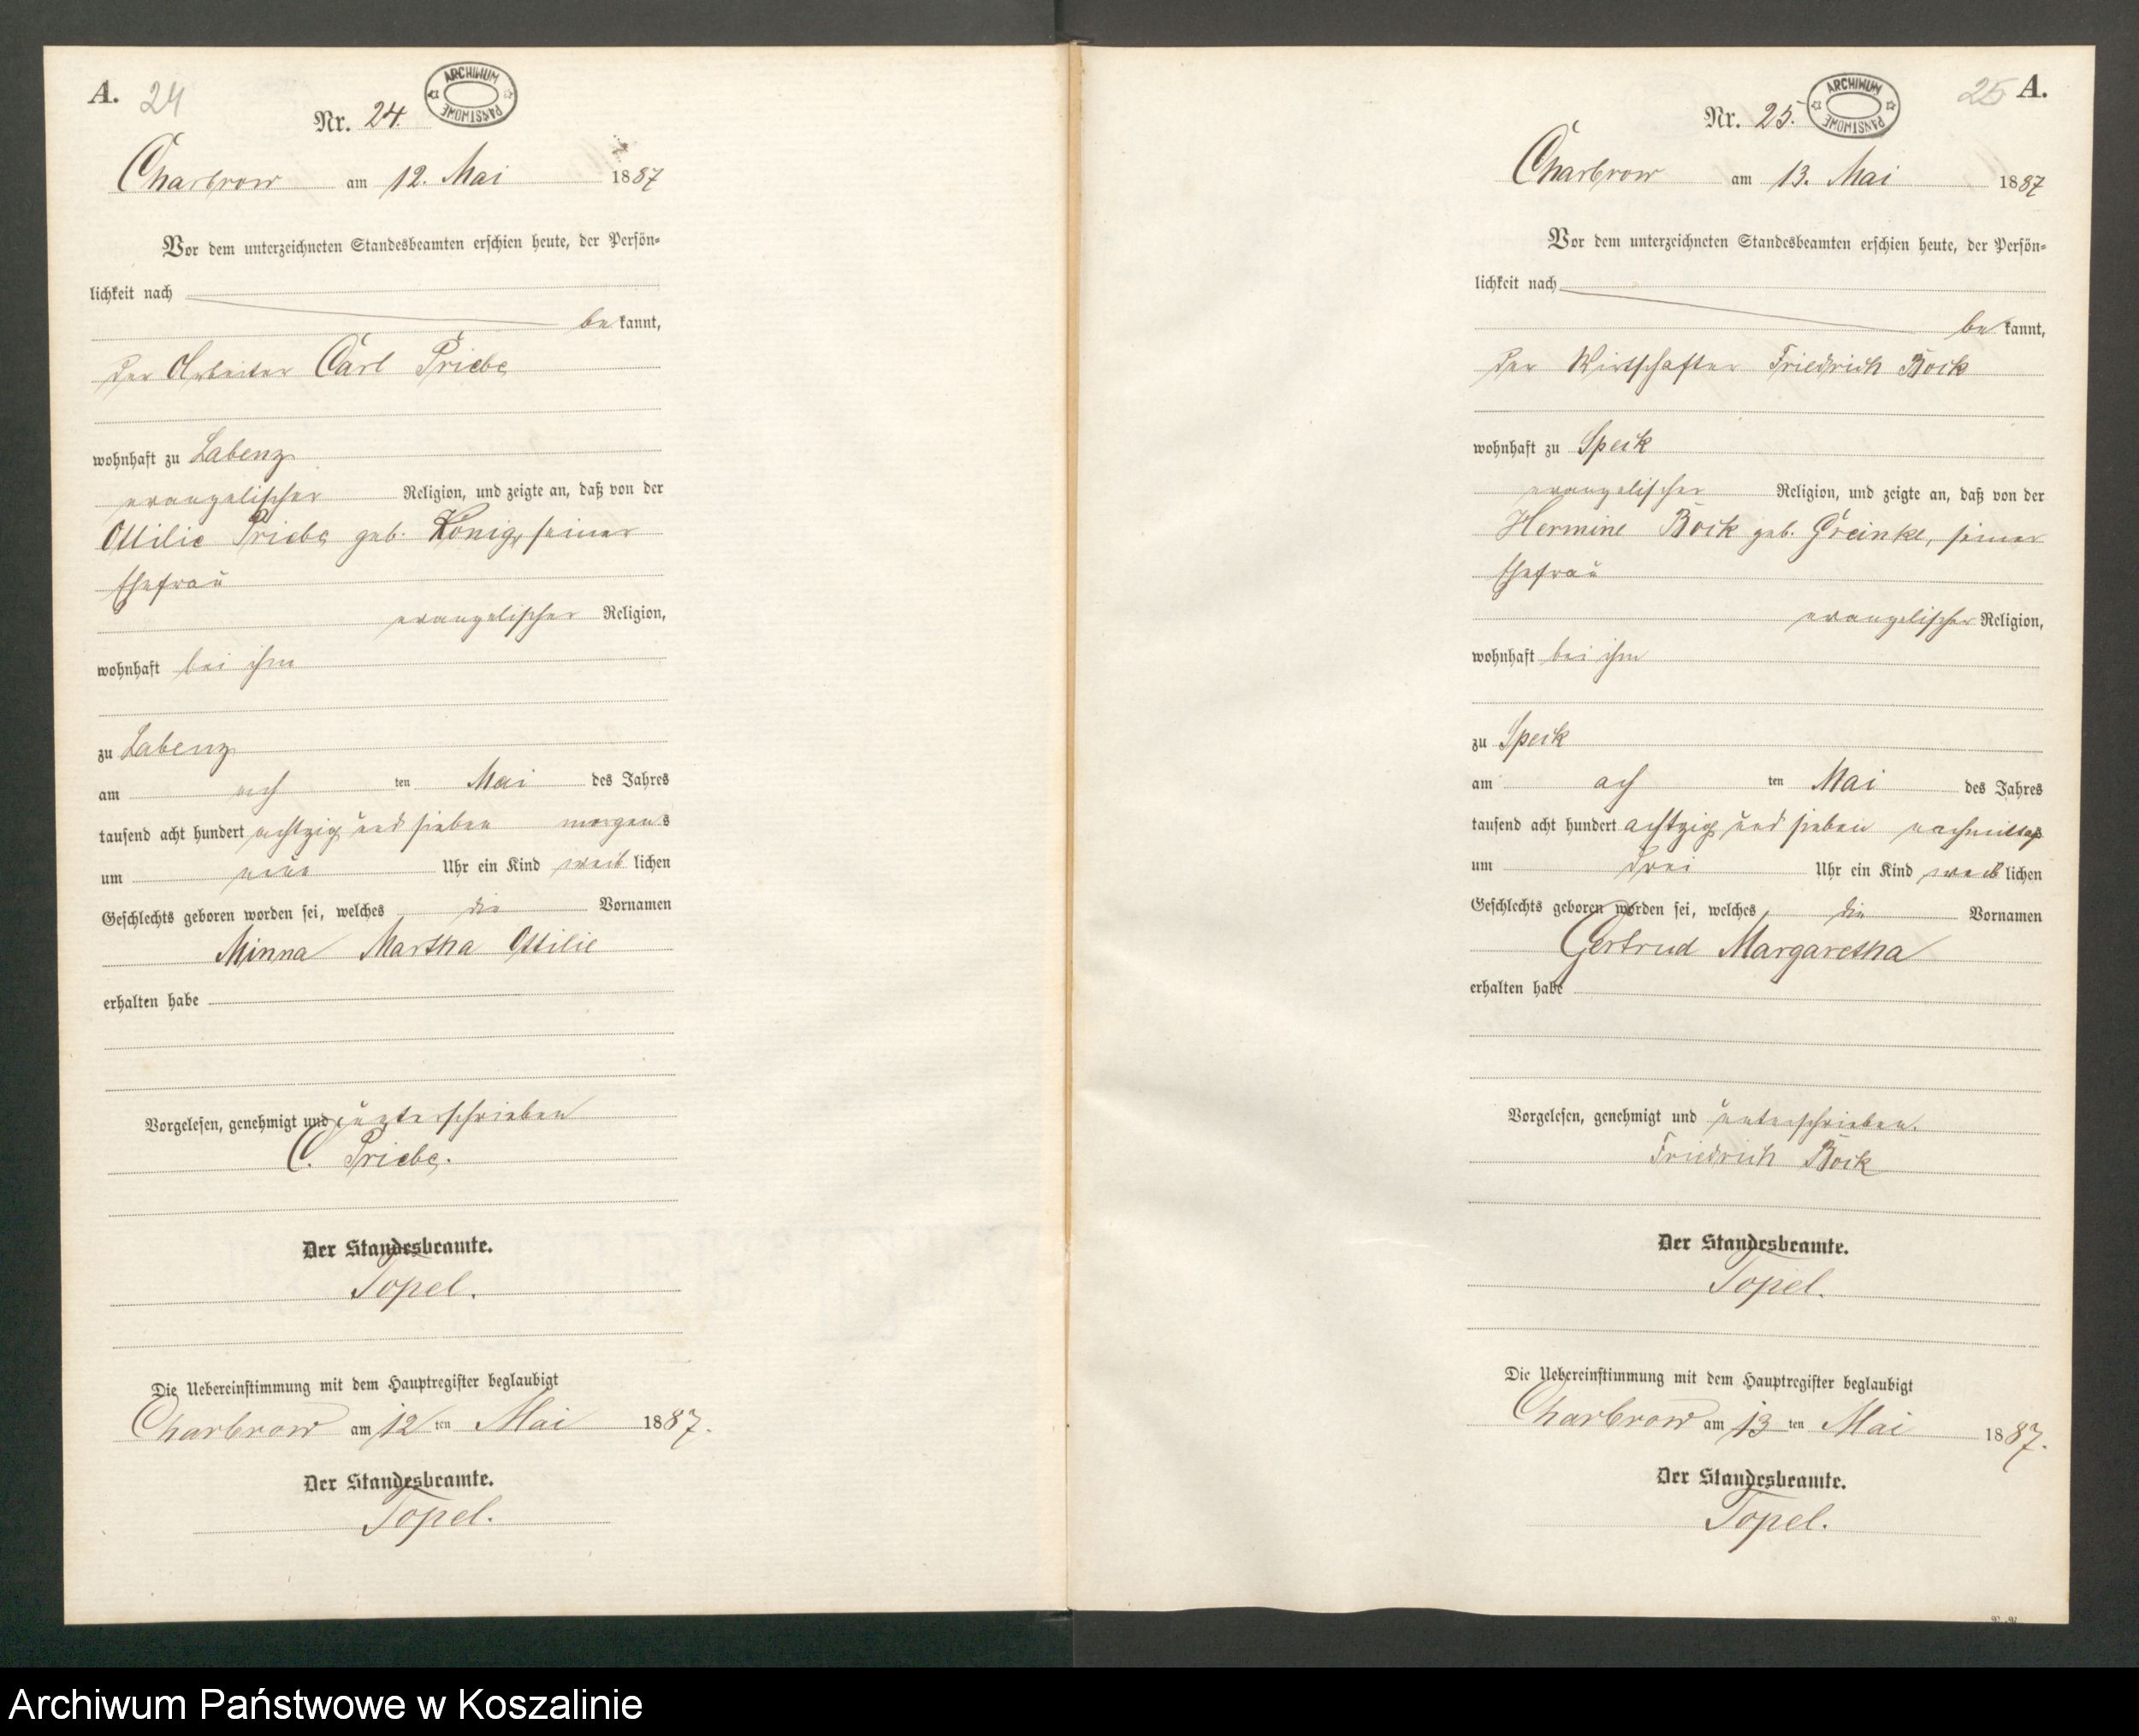 A. 24
Nr. 24.
ARCHIWUM PAŃSTWOWE
Charbrow am 12. Mai 1887
Vor dem unterzeichneten Standesbeamten erschien heute, der Persön-
lichkeit nach
bekannt,
der Arbeiter Carl Priebe
wohnhaft zu Labenz
evangelischer Religion, und zeigte an, daß von der
Ottilie Priebe geb. König, seiner
Ehefrau
evangelischer Religion,
wohnhaft bei ihm
zu Labenz
am ach ten Mai des Jahres
tausend acht hundert achtzig und sieben morgens
um neun Uhr ein Kind weiblichen
Geschlechts geboren worden sei, welches die Vornamen
Minna Martha Ottilie
erhalten habe
Vorgelesen, genehmigt und unterschrieben
C. Priebe.
Der Standesbeamte.
Topel.
Die Uebereinstimmung mit dem Hauptregister beglaubigt
Charbrow am 12 ten Mai 1887.
Der Standesbeamte.
Topel.
25 A.
Nr. 25.
ARCHIWUM PAŃSTWOWE
Charbrow am 13. Mai 1887
Vor dem unterzeichneten Standesbeamten erschien heute, der Persön-
lichkeit nach
bekannt,
der Wirtschafter Friedrich Bock
wohnhaft zu Speck
evangelischer Religion, und zeigte an, daß von der
Hermine Bock geb. Greinke, seiner
Ehefrau
evangelischer Religion,
wohnhaft bei ihm
zu Speck
am ach ten Mai des Jahres
tausend acht hundert achtzig und sieben nachmittags
um drei Uhr ein Kind weiblichen
Geschlechts geboren worden sei, welches die Vornamen
Gertrud Margaretha
erhalten habe
Vorgelesen, genehmigt und unterschrieben.
Friedrich Bock
Der Standesbeamte.
Topel.
Die Uebereinstimmung mit dem Hauptregister beglaubigt
Charbrow am 13 ten Mai 1887.
Der Standesbeamte.
Topel.
Archiwum Państwowe w Koszalinie